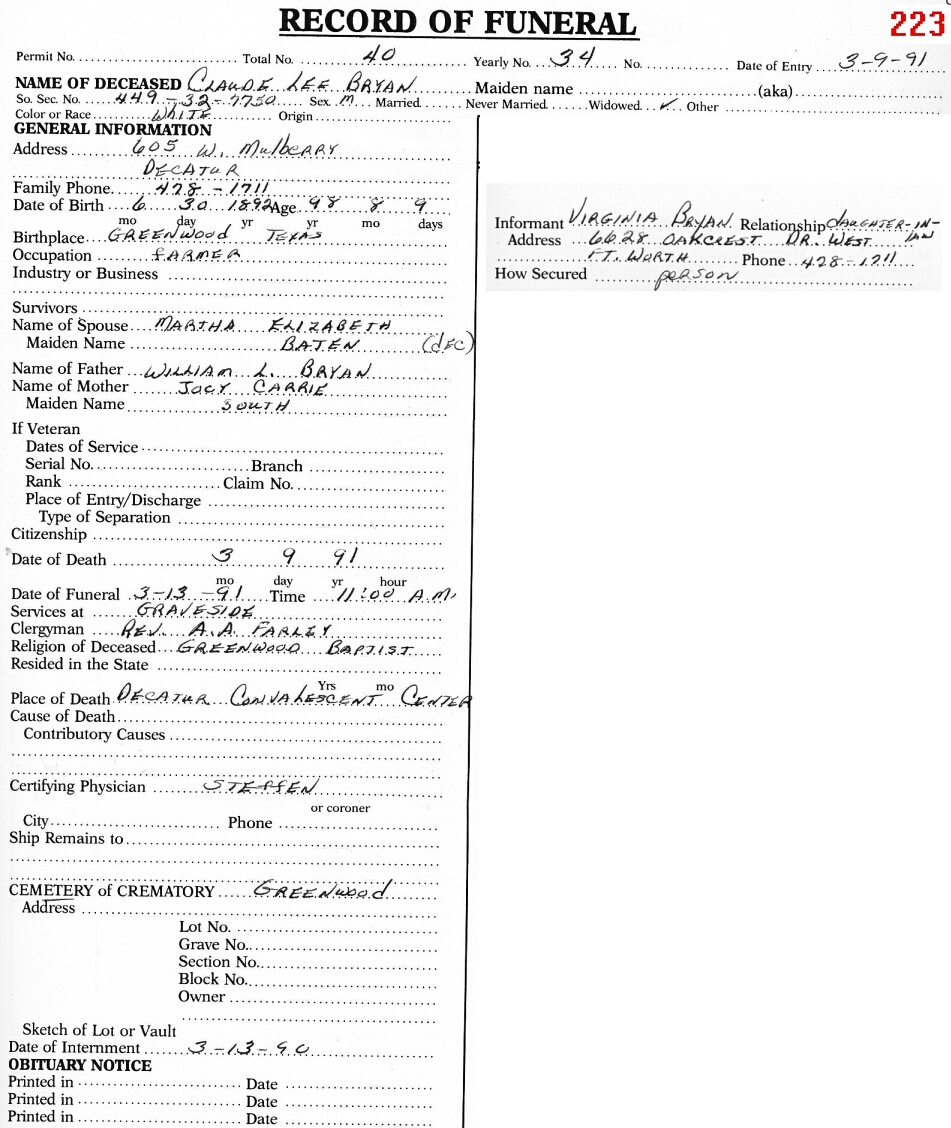 RECORD OF FUNERAL
223
Permit No. Total No. 40 Yearly No. 34 No. Date of Entry 3-9-91
NAME OF DECEASED CLAUDE LEE BRYAN Maiden name (aka)
So. Sec. No. 449-32-7750 Sex M Married Never Married Widowed ✓ Other
Color or Race WHITE Origin
GENERAL INFORMATION
Address 605 W. MulbERRY
DECATUR
Family Phone 478-1711
Date of Birth 6 30 1892 Age 98 8 9
mo day yr yr mo days
Birthplace GREENWOOD TEXAS
Occupation FARMER
Industry or Business
Survivors
Name of Spouse MARTHA ELIZABETH
Maiden Name BATEN (dEC)
Name of Father WILLIAM L. BRYAN
Name of Mother JOCY CARRIE
Maiden Name SOUTH
If Veteran
Dates of Service
Serial No. Branch
Rank Claim No.
Place of Entry/Discharge
Type of Separation
Citizenship
Date of Death 3 9 91
mo day yr hour
Date of Funeral 3-13-91 Time 11:00 A.M.
Services at GRAVESIDE
Clergyman REV. A.A. FARLEY
Religion of Deceased GREENWOOD BAPTIST
Resided in the State
Yrs mo
Place of Death DECATUR CONVALESCENT CENTER
Cause of Death
Contributory Causes
Certifying Physician
or coroner
City Phone
Ship Remains to
CEMETERY of CREMATORY GREENWOOd
Address
Lot No.
Grave No.
Section No.
Block No.
Owner
Sketch of Lot or Vault
Date of Internment 3-13-90
OBITUARY NOTICE
Printed in Date
Printed in Date
Printed in Date
Informant VIRGINIA BRYAN Relationship DAUGHTER-IN-LAW
Address 6628 OAKCREST DR. WEST
FT. WORTH Phone 428-1711
How Secured PERSON